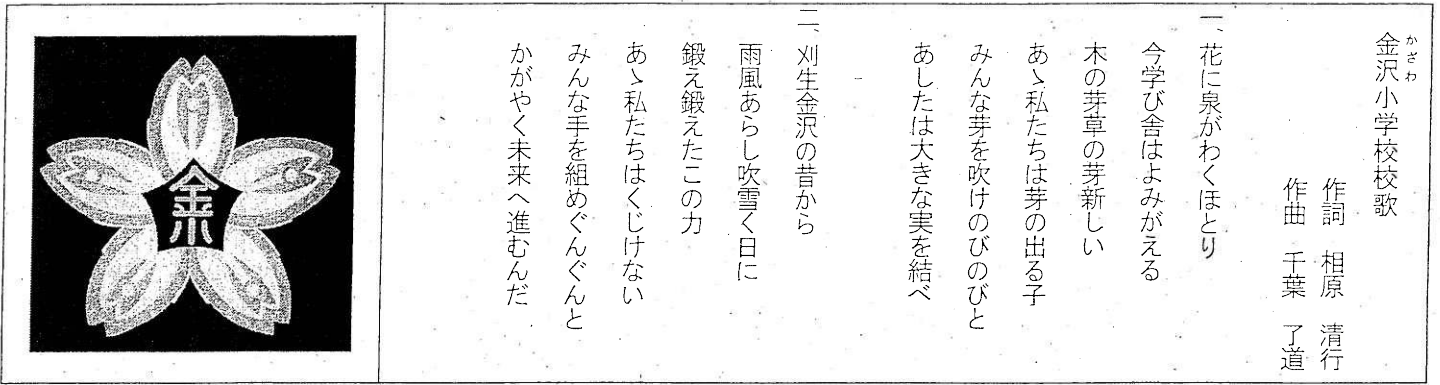 金沢小学校校歌
かざわ
作詞 相原 清行
作曲 千葉 了道
一、花に泉がわくほとり
今学び舎はよみがえる
木の芽草の芽新しい
あゝ私たちは芽の出る子
みんな芽を吹けのびのびと
あしたは大きな実を結べ
二、刈生金沢の昔から
雨風あらし吹雪く日に
鍛え鍛えたこの力
あゝ私たちはくじけない
みんな手を組めぐんぐんと
かがやく未来へ進むんだ
金小